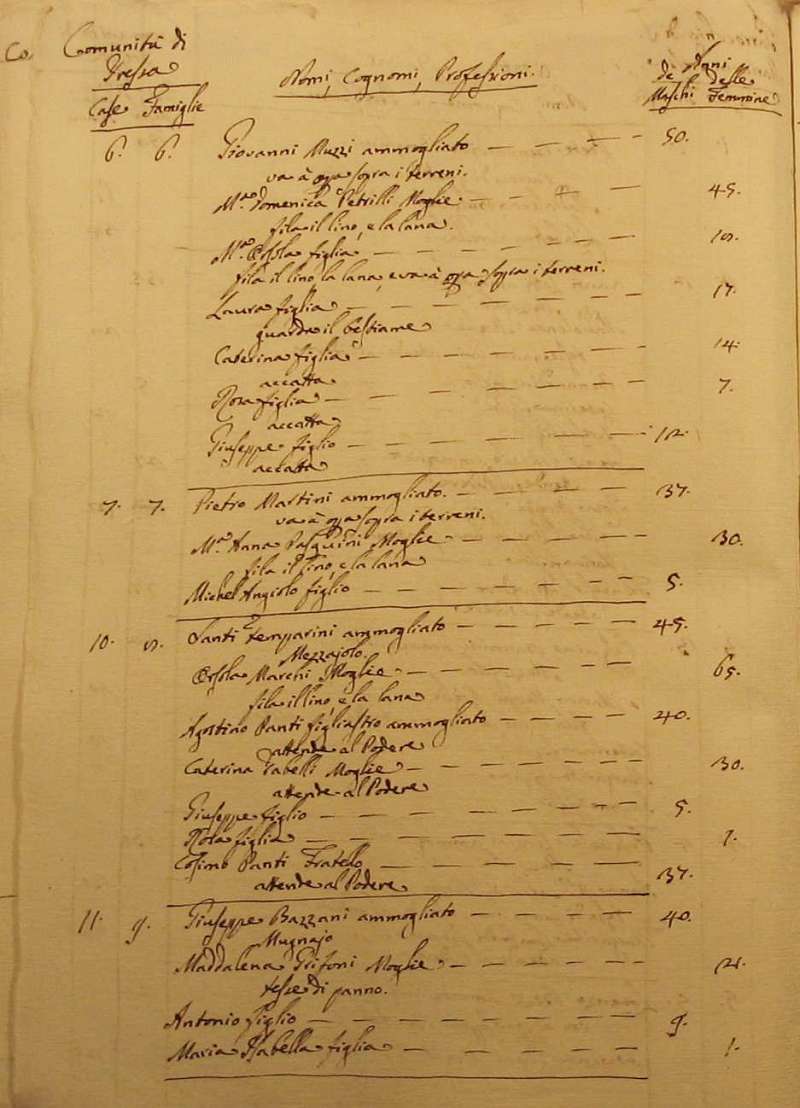 Co. Comunità di
Nomi, Cognomi, Professioni.
Anni
de delle
Maschi Femmine
Case Famiglie
6. 6. Giovanni Muzzi ammogliato — — — — 50.
va à opa sopra i terreni.
M.a Domenica Petrilli Moglie — — — — 45.
fila il lino, e la lana.
M.a Orsola figlia — — — — — —
fila il lino, la lana, e va à opa sopra i terreni.
Laura figlia — — — — — — 17.
guarda il bestiame
Caterina figlia — — — — — — 14.
accatta
Rosa figlia — — — — — — 7.
accatta
Giuseppe figlio — — — — — — 12.
accatta
7. 7. Pietro Martini ammogliato. — — — — 37.
va à opa sopra i terreni.
M.a Anna Pasquini Moglie — — — — 30.
fila il lino, e la lana
Michel'Angiolo figlio — — — — — 5.
10. Santi Temparini ammogliato — — — — 45.
Mezzajolo.
Orsola Marchi Moglie — — — — — 65.
fila il lino, e la lana
Agostino Panti figliastro ammogliato — — — 40.
attende al Podere
Caterina Moglie — — — — — 30.
attende al Podere
Giuseppe figlio — — — — — — 5.
Rosa figlia — — — — — — 1.
Cosimo Panti Fratello — — — — — 37.
attende al Podere
11. 9. Giuseppe Bazzani ammogliato — — — — 40.
Mugnajo
Maddalena Grifoni Moglie — — — —
tesse di panno.
Antonio figlio — — — — — — 9.
Maria Isabella figlia — — — — — 1.